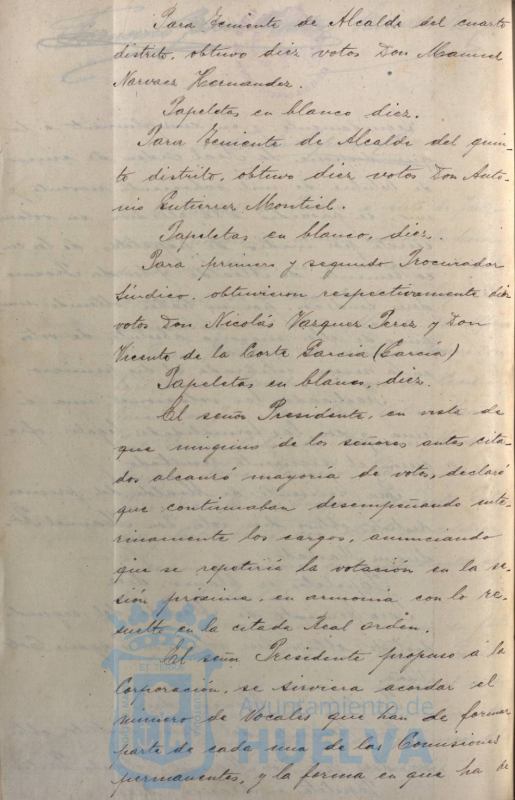 Para Teniente de Alcalde del cuarto
distrito, obtuvo diez votos Don Manuel
Narvaez Hernandez.
Papeletas en blanco diez.
Para Teniente de Alcalde del quin-
to distrito, obtuvo diez votos Don Anto-
nio Gutierrez Montiel.
Papeletas en blanco, diez.
Para primero y segundo Procurador
Síndico, obtuvieron respectivamente diez
votos Don Nicolás Vazquez Perez y Don
Vicente de la Corte Garcia (García)
Papeletas en blanco, diez.
El señor Presidente, en vista de
que ninguno de los señores antes cita-
dos alcanzó mayoría de votos, declaró
que continuaban desempeñando inte-
rinamente los cargos, anunciando
que se repetiría la votación en la se-
sión proxima, en armonia con lo re-
suelto en la citada Real orden.
El señor Presidente propuso á la
Corporación, se sirviera acordar el
número de Vocales que han de formar
parte de cada una de las Comisiones
permanentes, y la forma en que ha de
Ayuntamiento de
HUELVA